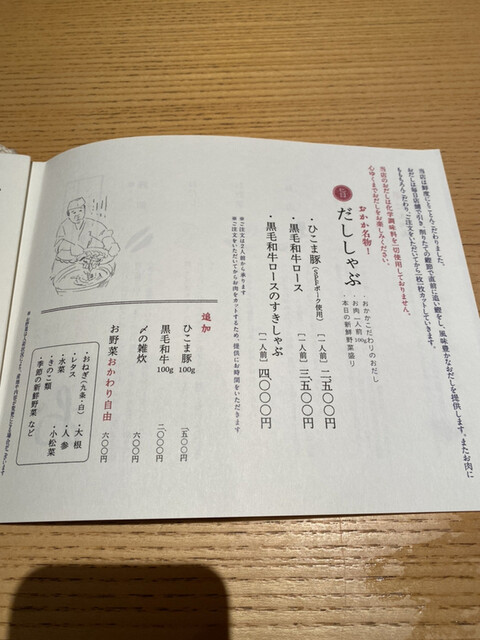 当店は鮮度にとことんこだわりました。
おだしは毎日店舗で引き、削りたての鰹節で直前に追い鰹をし、風味豊かなおだしを提供します。またお肉に
もももちろんこだわり、ご注文をいただいてから一枚一枚カットしていきます。
当店のおだしは化学調味料を一切使用しておりません。
心ゆくまでおだしをお楽しみください。
おかか名物！
だししゃぶ
・おかかこだわりのおだし
・お肉一人前100g
・本日の新鮮野菜盛り
・ひこま豚（SPFポーク使用） ［一人前］ 二、五〇〇円
・黒毛和牛ロース ［一人前］ 三、五〇〇円
・黒毛和牛ロースのすきしゃぶ ［一人前］ 四、〇〇〇円
※ご注文は2人前から承ります
※ご注文をいただいてからお肉をカットするため、提供にお時間をいただきます
追加
ひこま豚 100g 一、五〇〇円
黒毛和牛 100g 二、〇〇〇円
〆の雑炊 六〇〇円
お野菜おかわり自由 六〇〇円
・おねぎ（九条・白） ・大根
・レタス ・人参
・水菜 ・小松菜
・きのこ類
・季節の新鮮野菜 など